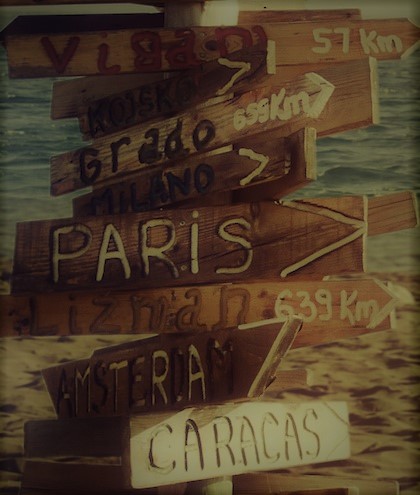 Vigan 57 Km
KOJSKO
Grado 655Km
MILANO
PARiS
Lizman 639Km
AMSTERDAM
CARACAS